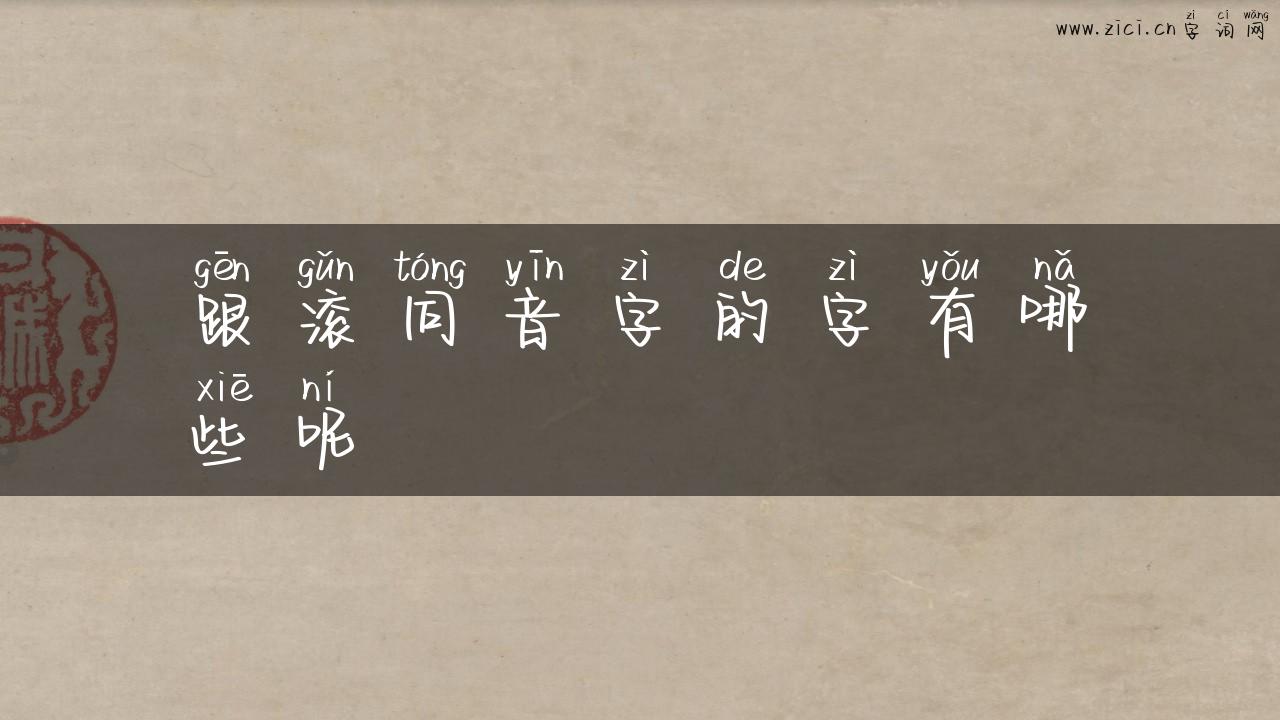 zì cí wǎng
www.zici.cn字词网
gēn gǔn tóng yīn zì de zì yǒu nǎ
跟滚同音字的字有哪
xiē ní
些呢